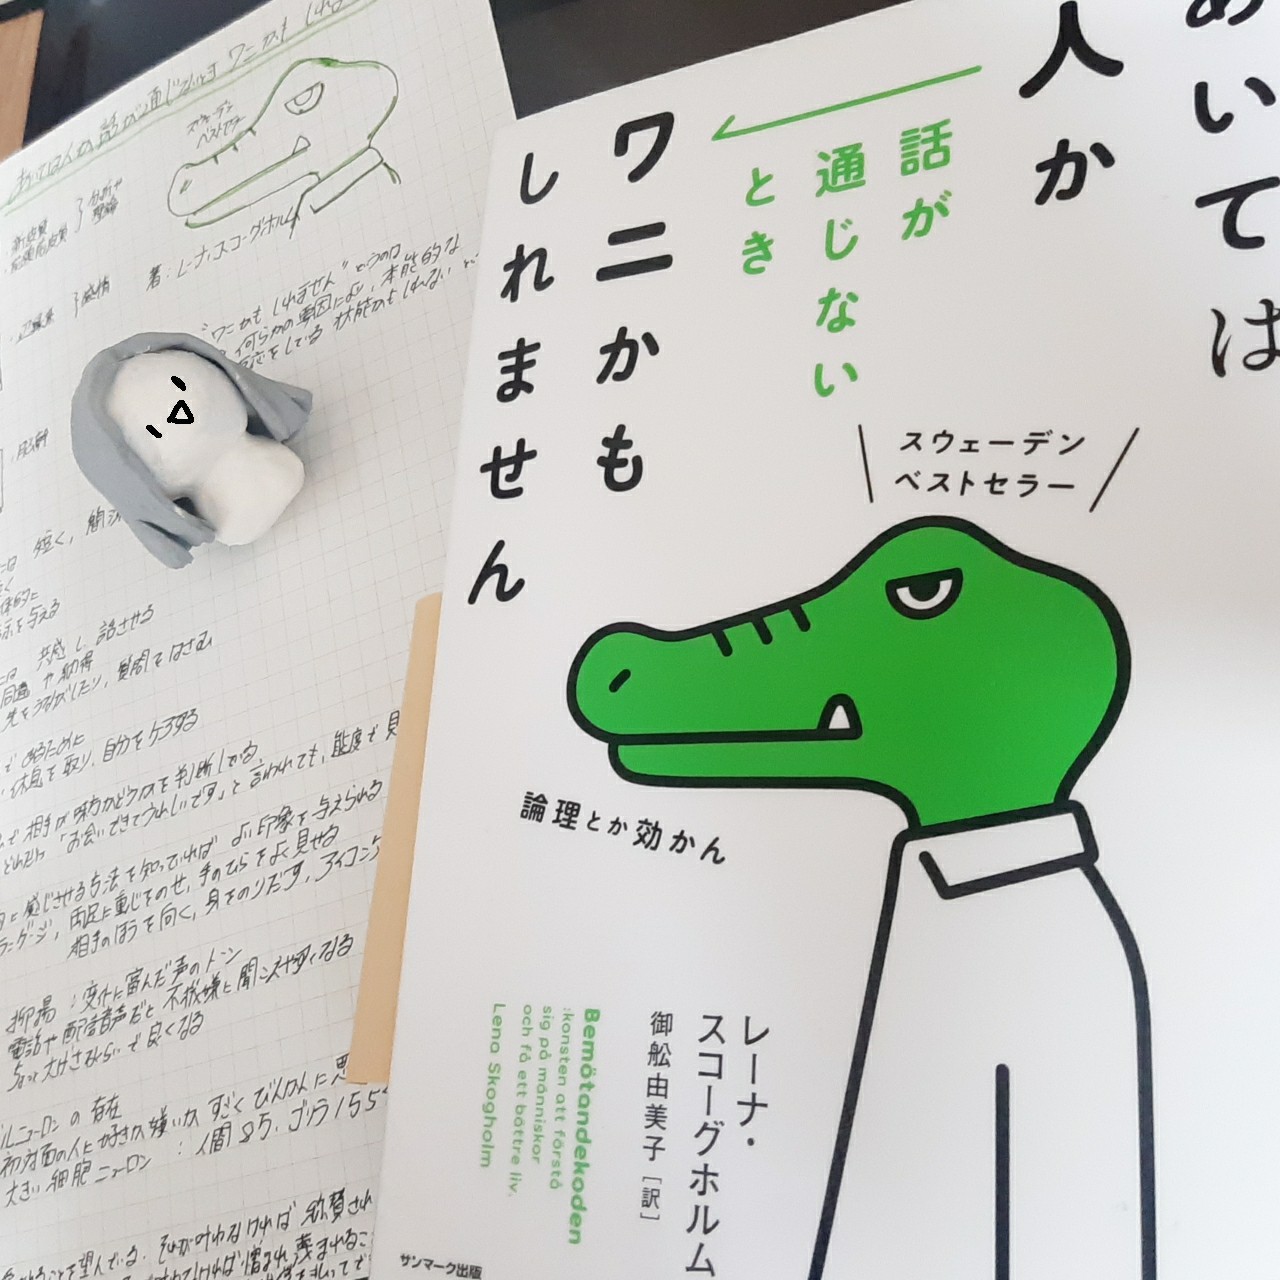 あいては
人か
話が
通じない
とき
ワニかも
しれません
スウェーデン
ベストセラー
論理とか効かん
レーナ・
スコーグホルム
御舩由美子[訳]
Bemötandekoden
:konsten att förstå
sig på människor
och få ett bättre liv.
Lena Skogholm
サンマーク出版
あいては人か 話が通じないとき ワニかも しれ
スウェーデン
ベストセラー
著:レーナ・スコーグホルム
新皮質
分析や
理論
感情
反射
"ワニかも しれません"というのは
何らかの要因により、本能的な
反応をしている 状態かもしれない
短く、簡
体的に
示を与える
共感し 話させる
や納得
先をうながしたり、質問をはさむ
であるために
休息を取り、自分を
で 相手が味方かどうかを判断している
どれだけ「お会いできてうれしいです」と言われても、態度で見
に感じさせる方法を知っていれば よい印象を与えられる
ランゲージ, 両足に重心をのせ, 手のひらをよく見せる
相手のほうを向く, 身をのりだす, アイコンタ
抑揚:変化に富んだ声のトーン
電話や配信音声だと 不機嫌に聞こえやすくなる
ちょっと大げさぐらいで良くなる
ルニューロン の存在
初対面の人に好きか嫌いか すごくびんかんに
大きい細胞ニューロン : 人間85, ゴリラ155
ことを望んでいる. それが叶わなければ 称賛され
叶わなければ憎まれ, 蔑まれるこ